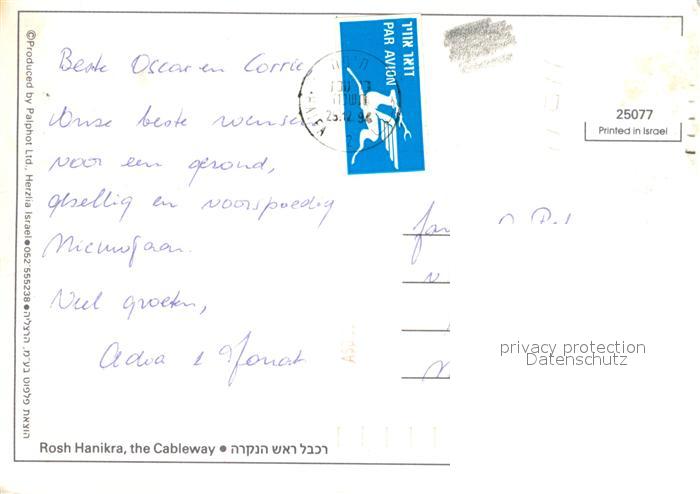 Beste Oscar en Corrie
Onze beste wensen
voor een gezond,
gezellig en voorspoedig
Nieuwjaar.
Veel groeten,
Adva & Yonat
דואר אוויר
PAR AVION
25.12.96
25077
Printed in Israel
©Produced by Palphot Ltd., Herzlia Israel ● 052'555238 ● הוצאת פלפוט בע"מ. הרצליה
privacy protection
Datenschutz
Rosh Hanikra, the Cableway ● רכבל ראש הנקרה